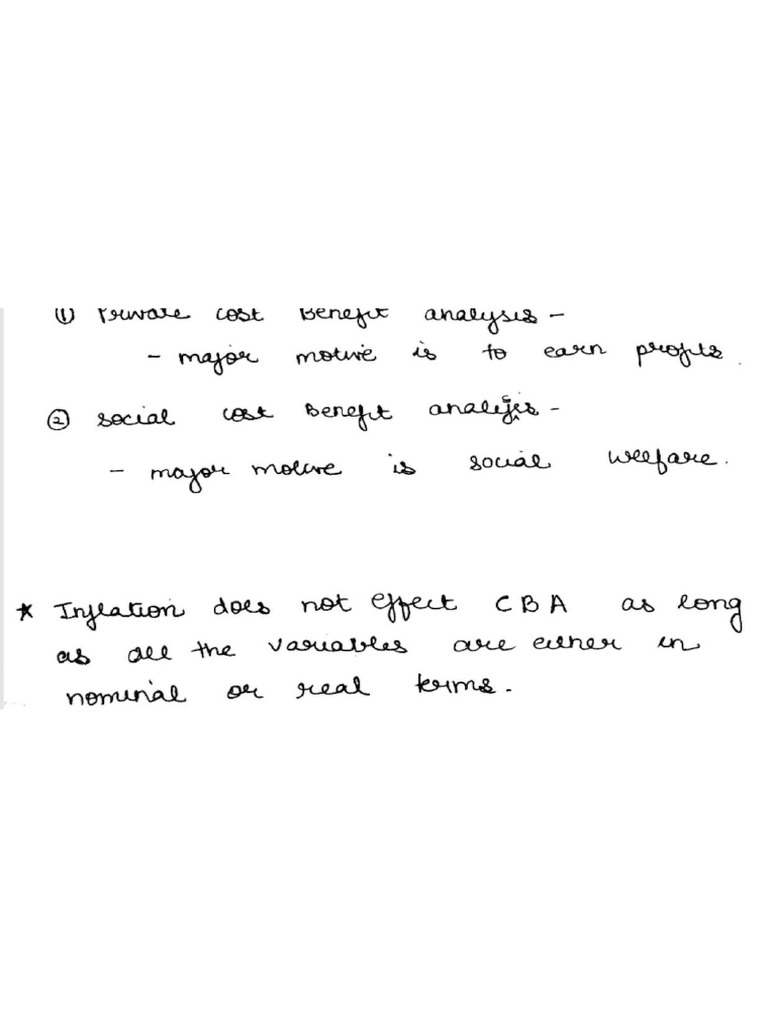 ① Private cost Benefit analysis -
- major motive is to earn profits.
② social cost Benefit analysis -
- major motive is social welfare.
* Inflation does not effect CBA as long
as all the variables are either in
nominal or real terms.